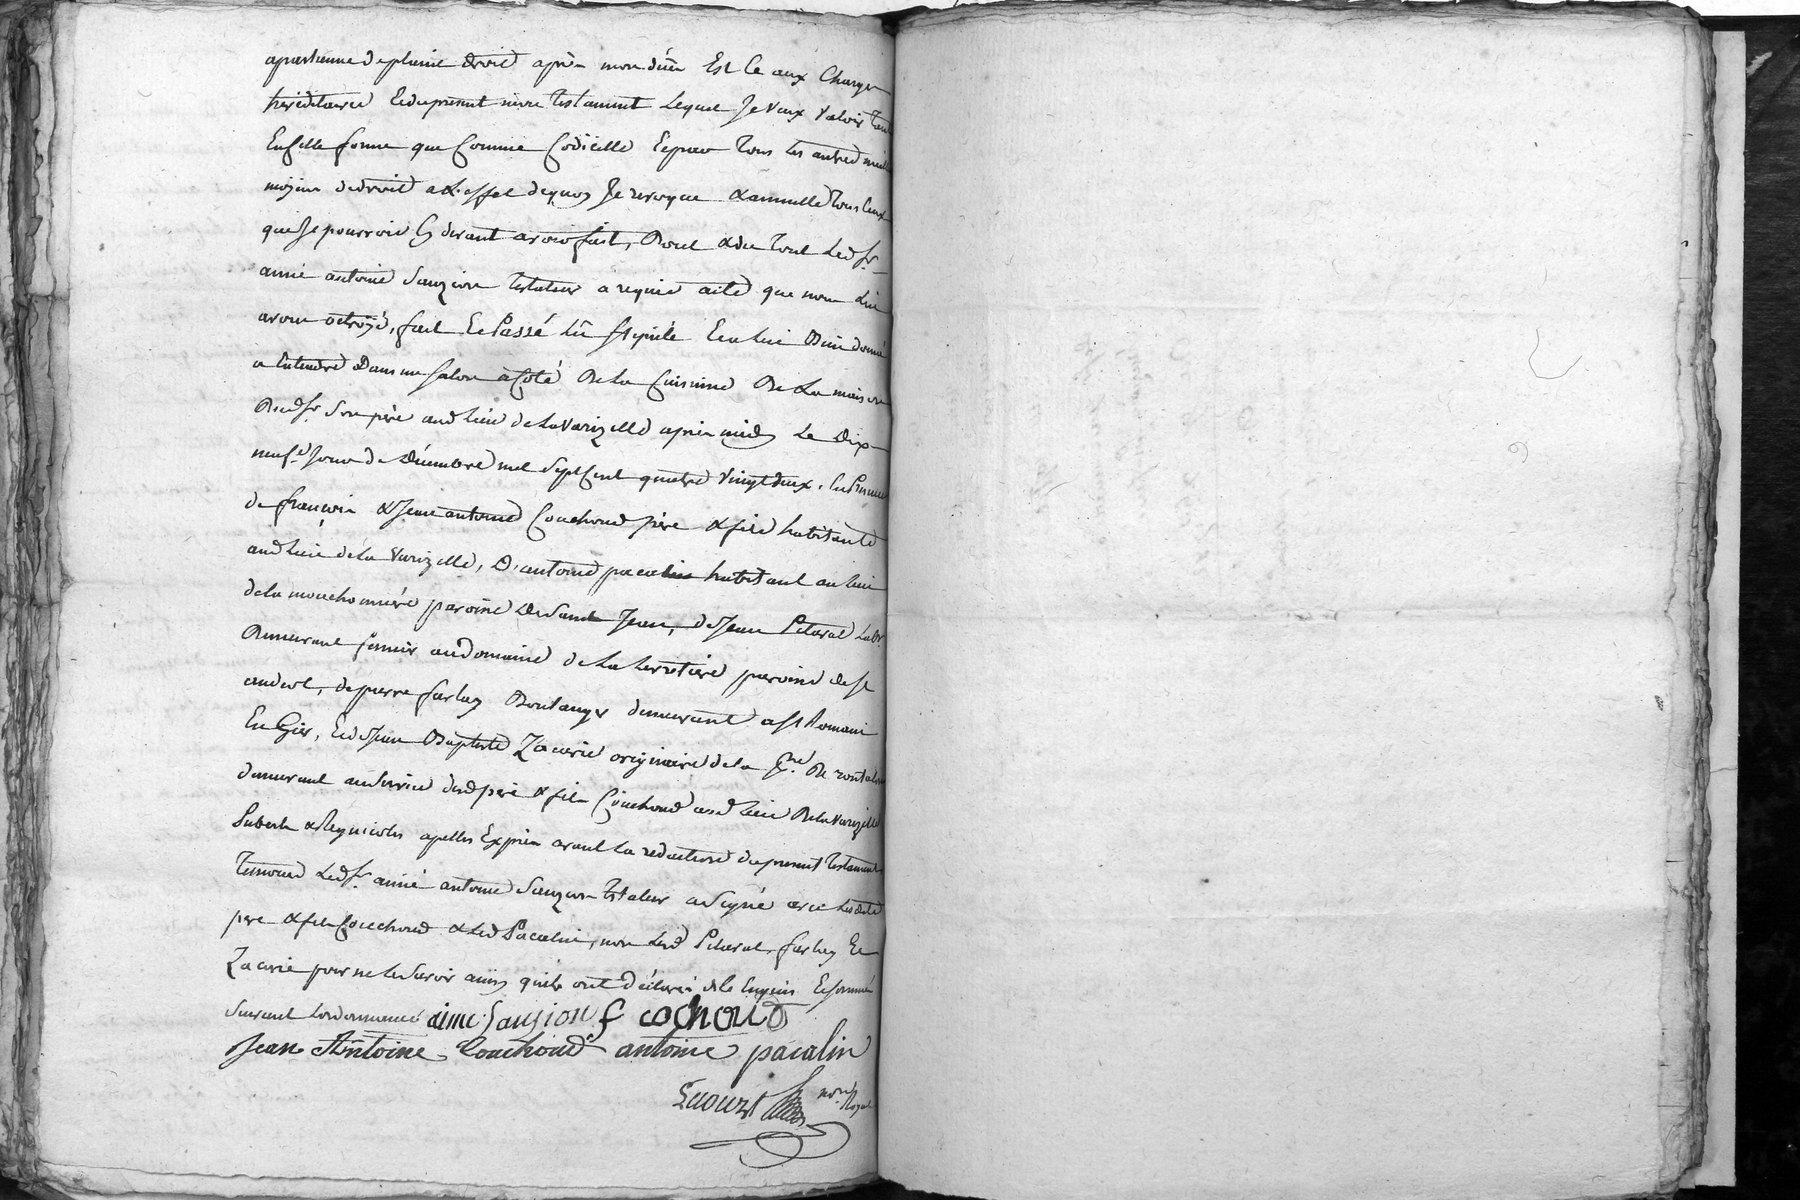 apartienne de plainie droit après mon décès Est ce aux Charges
héréditaires Et du present mien testament Lequel Je veux valoir tant
En cette forme que Comme Codicille Et par tous les autres
moyens de droit a L'effet de quoy Je revoque & annulle tous Ceux
que Je pourrois Cy devant avoir fait, Dont & du tout Led. Sr.
aimé antoine Sauzion testateur a requis acte que nous Lui
avons octroyé, fait Et Passé Lû Et à lui donné
a Entendre Dans un Salon à Coté De la Cuisine De La maison
Dud. Sr. Son père aud. Lieu de La Varizelle après midy Le Dix
neufe. Jour de Décembre mil Sept Cent quatre vingt deux. En Presence
de françois & Jean antoine Couchoud père & fils habitants
aud. Lieu de La Varizelle, D'antoine pacalin habitant au lieu
de la mouchonnière paroisse De Saint Jean, de Jean Pitaval Labr.
Demeurant fermier au domaine de la terretière paroisse de St
andeol, de pierre farlay Boulanger demeurant a St Romain
En Gier, Et de Jean Baptiste Zacarie originaire de la pse. De rontalon
demeurant au Service desd. père & fils Couchoud aud. Lieu De la Varizelle
Puberts & Regnicoles apellés Exprès avant La rédaction du present testament
Temoins Led. Sr. aimé antoine Sauzion testateur a Signé avec Lesdits
père & fils Couchoud & Led. Pacalin, non Lesd. Pitaval, farlay Et
Zacarie pour ne le Savoir ainsy qu'ils ont déclaré de ce Enquis Et Sommés
Suivant Lordonnance aimé Sauzion f cochoud
Jean Antoine Couchoud antoine pacalin
nore. Royal